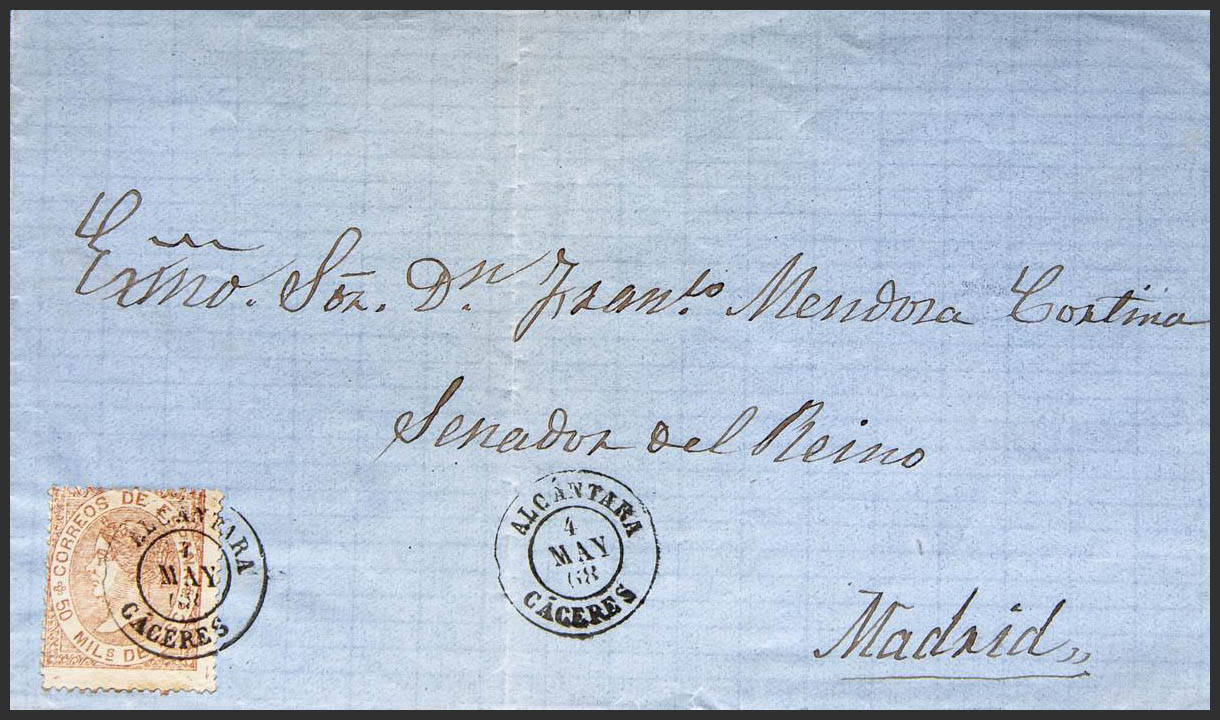 Exmo. Sor. Dn. Franto. Mendoza Cortina
Senador del Reino
Madrid
CORREOS DE E
50 MILS DE
ALCÁNTARA
4
MAY
68
CÁCERES
ALCÁNTARA
4
MAY
68
CÁCERES